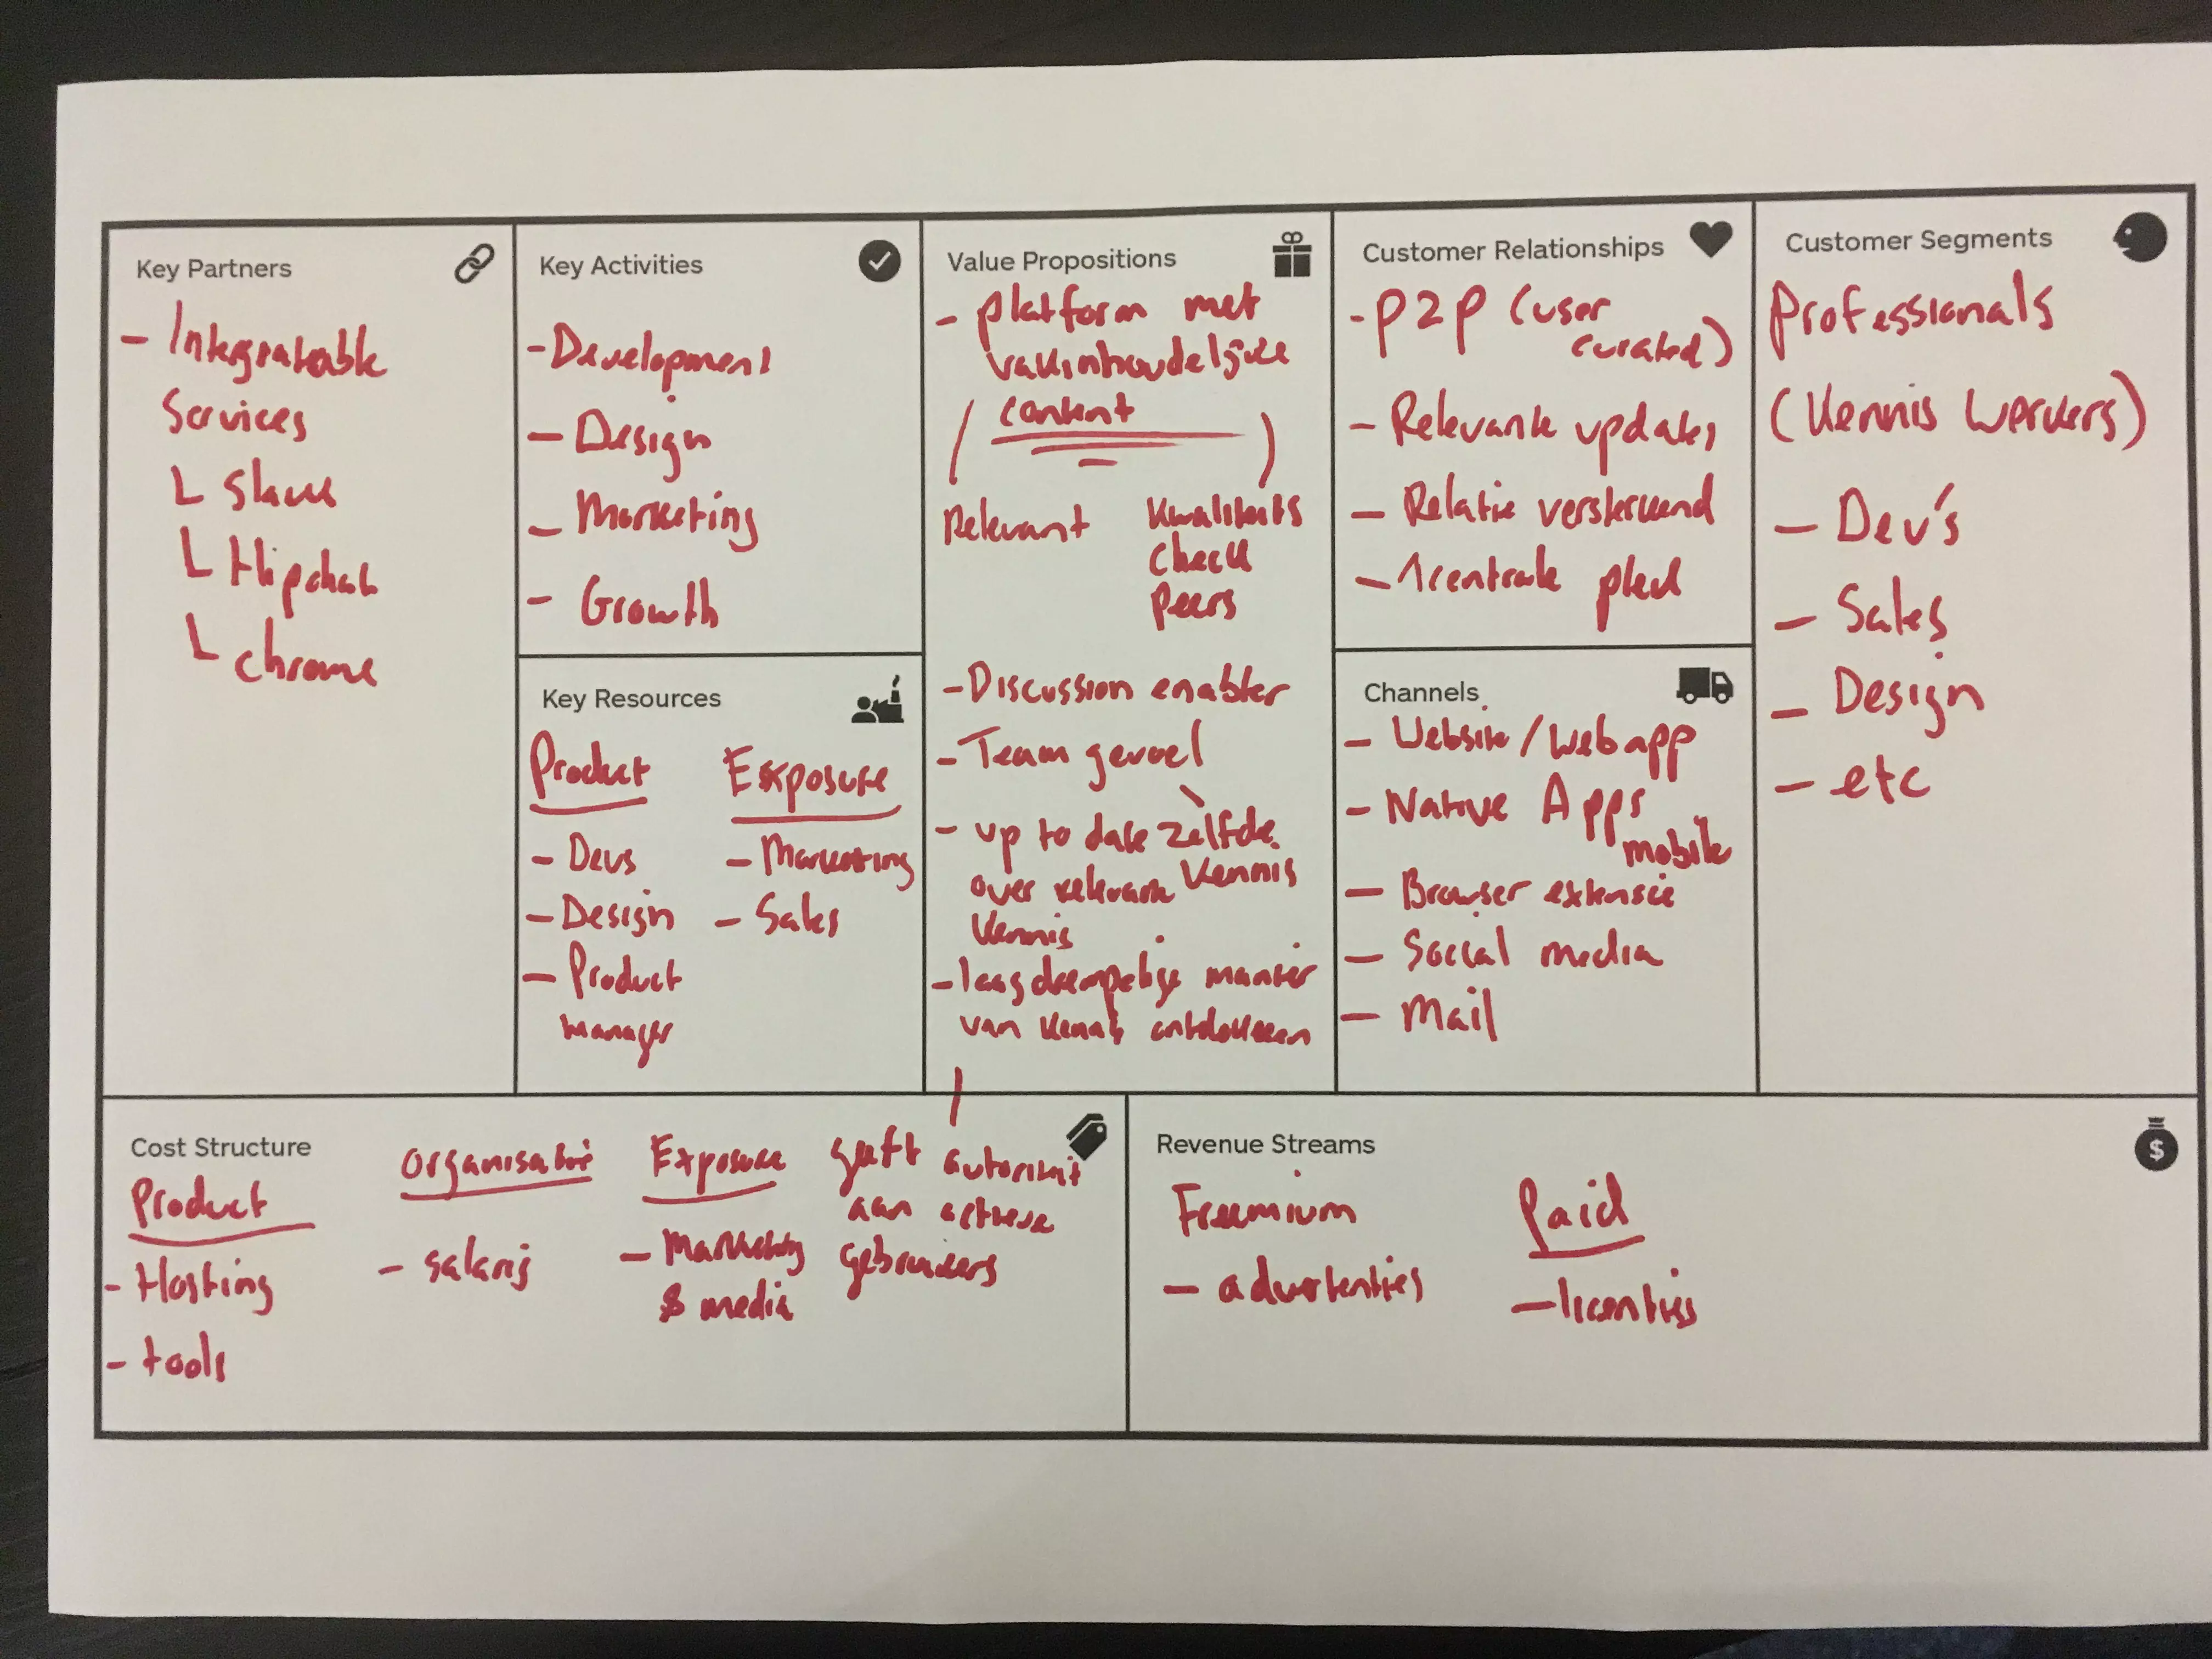 Key Partners
- Integrateable
Services
L Slack
L Hipchat
L chrome
Key Activities
- Development
- Design
- Marketing
- Growth
Key Resources
Product
- Devs
- Design
- Product
manager
Exposure
- Marketing
- Sales
Value Propositions
- platform met
vakinhoudelijke
content
Relevant
Kwaliteits
check
peers
- Discussion enabler
- Team gevoel
zelfde
kennis
- up to date
over relevante
kennis
- laagdrempelige manier
van kennis ontdekken
geeft autoriteit
aan actieve
gebruikers
Customer Relationships
- P2P (user
curated)
- Relevante updates
- Relatie versterkend
- 1 centrale plek
Channels
- Website / web app
- Native Apps
mobile
- Browser extensie
- Social media
- Mail
Customer Segments
Professionals
(Kennis werkers)
- Dev's
- Sales
- Design
- etc
Cost Structure
Product
- Hosting
- tools
Organisatie
- salaris
Exposure
- Marketing
& media
Revenue Streams
Freemium
- advertenties
Paid
- licenties